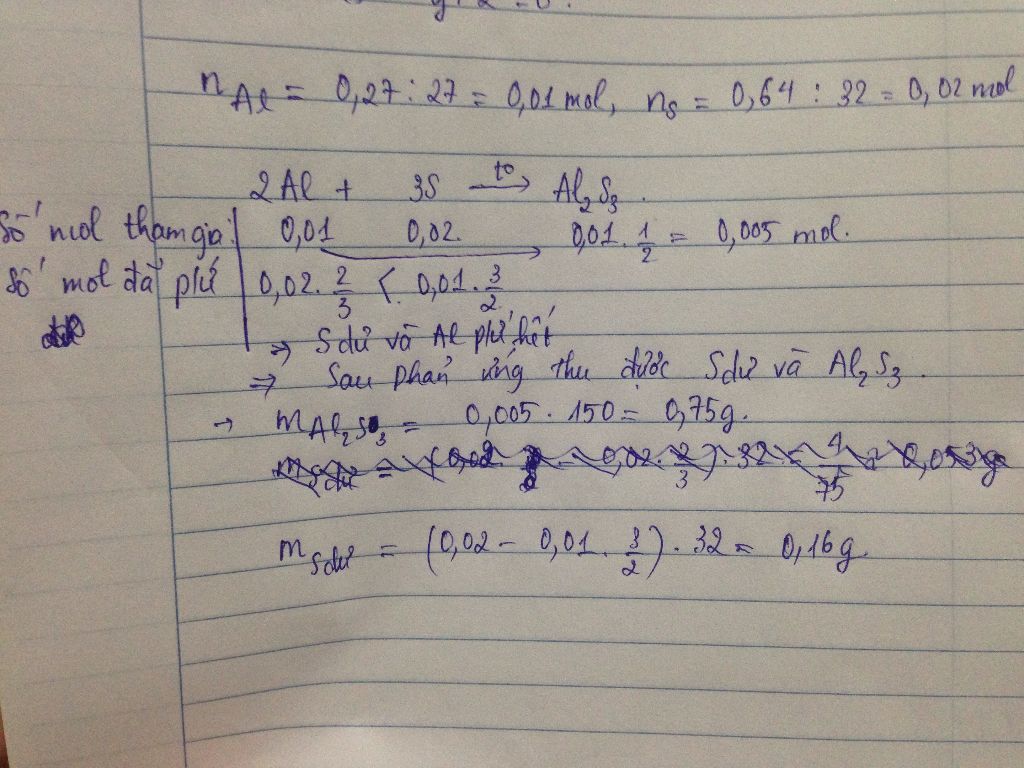 n Al = 0,27 : 27 = 0,01 mol, nS = 0,64 : 32 = 0,02 mol
2Al + 3S →(to) Al2S3.
Số mol tham gia: 0,01 0,02. 0,01 . 1/2 = 0,005 mol.
Số mol đã pứ 0,02 . 2/3 < 0,01 . 3/2
⇒ S dư và Al pứ hết
⇒ Sau phản ứng thu được S dư và Al2S3.
→ m Al2S3 = 0,005 . 150 = 0,75g.
m S dư = (0,02 - 0,02 . 2/3) . 32 = 4/75 = 0,053g
m S dư = (0,02 - 0,01 . 3/2) . 32 = 0,16g.